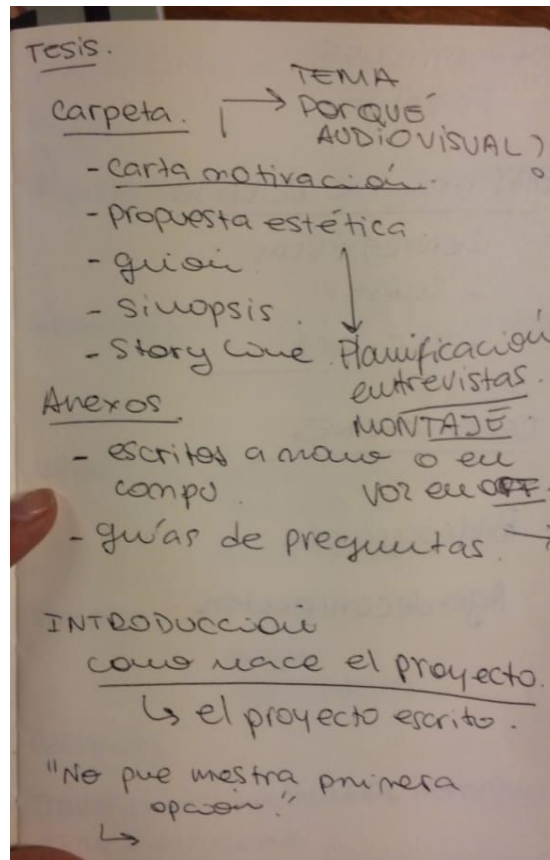 Tesis.
Carpeta.
TEMA
PORQUÉ
AUDIOVISUAL?
- carta motivación.
- propuesta estética
- guion
- Sinopsis.
- Story Line.
Planificación
entrevistas.
MONTAJE.
VOZ en OFF.
Anexos.
- escritos a mano o en
compu.
- guías de preguntas
INTRODUCCIÓN
como nace el proyecto.
↳ el proyecto escrito.
"No fue nuestra primera
opción."
↳